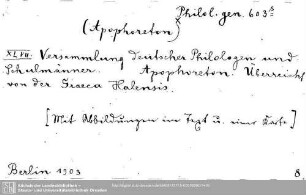 Philol. gen. 603ˢ
(Apophoreton)
XLVII. Versammlung Deutscher Philologen und
Schulmänner. Apophoreton. Überreicht
von der Graeca Halensis.
[Mit Abbildungen im Text u. einer Karte]
Berlin 1903
8